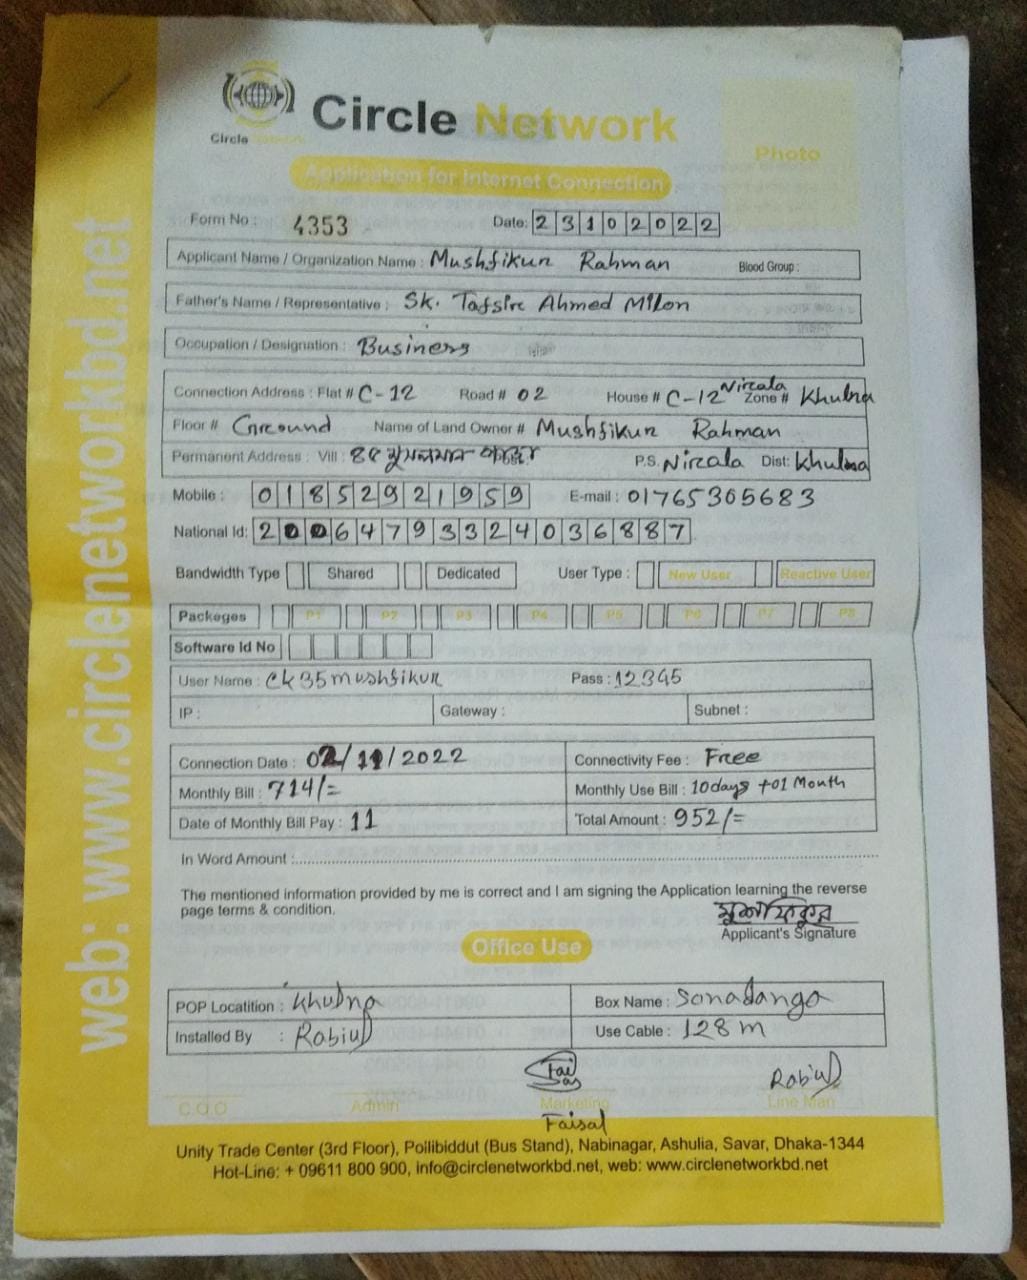 Circle Network
Circle Network
Photo
Application for Internet Connection
Form No : 4353 Date: 23102022
Applicant Name / Organization Name : Mushfikur Rahman Blood Group :
Father's Name / Representative : Sk. Tafsir Ahmed Milon
Occupation / Designation : Business
Connection Address : Flat # C-12 Road # 02 House # C-12 Nirala Zone # Khulna
Floor # Ground Name of Land Owner # Mushfikur Rahman
Permanent Address : Vill : P.S. Nirala Dist: Khulna
Mobile : 01852921959 E-mail : 01765305683
National Id: 20064793324036887
Bandwidth Type Shared Dedicated User Type : New User Reactive User
Packeges P1 P2 P3 P4 P5 P6 P7 P8
Software Id No
User Name : ck35mushfikur Pass : 12345
IP : Gateway : Subnet :
Connection Date : 02/11/2022 Connectivity Fee : Free
Monthly Bill : 714/= Monthly Use Bill : 10days +01 Month
Date of Monthly Bill Pay : 11 Total Amount : 952/=
In Word Amount :
The mentioned information provided by me is correct and I am signing the Application learning the reverse
page terms & condition.
মুশফিকুর
Applicant's Signature
Office Use
POP Locatition : Khulna Box Name : Sonadanga
Installed By : Rabiul Use Cable : 128 m
Rabiul
C.O.O Admin Marketing Line Man
Faisal
Unity Trade Center (3rd Floor), Poilibiddut (Bus Stand), Nabinagar, Ashulia, Savar, Dhaka-1344
Hot-Line: + 09611 800 900, info@circlenetworkbd.net, web: www.circlenetworkbd.net
web: www.circlenetworkbd.net